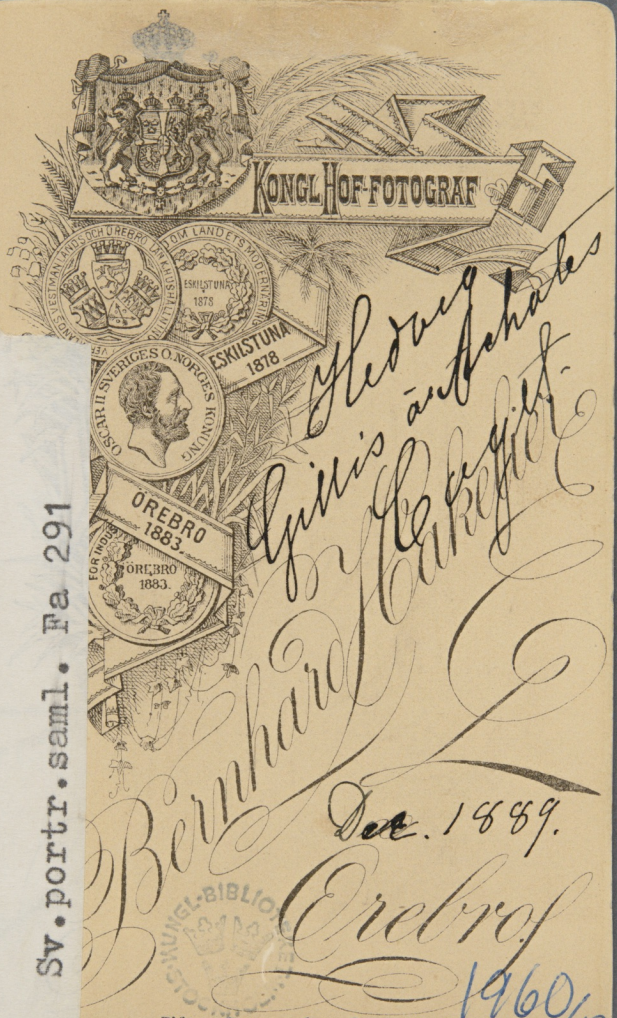 KONGL. HOF-FOTOGRAF
ESKILSTUNA
1878
ESKILSTUNA
1878
OSCAR II SVERIGES O. NORGES KONUNG
ÖREBRO
1883.
FÖR INDUS
ÖREBRO
1883.
Hedvig
Gillis
Bernhard Hakelier
Dec. 1889.
Örebro
KUNGL·BIBLIOTEKET
Sv.portr.saml. Fa 291
1960/